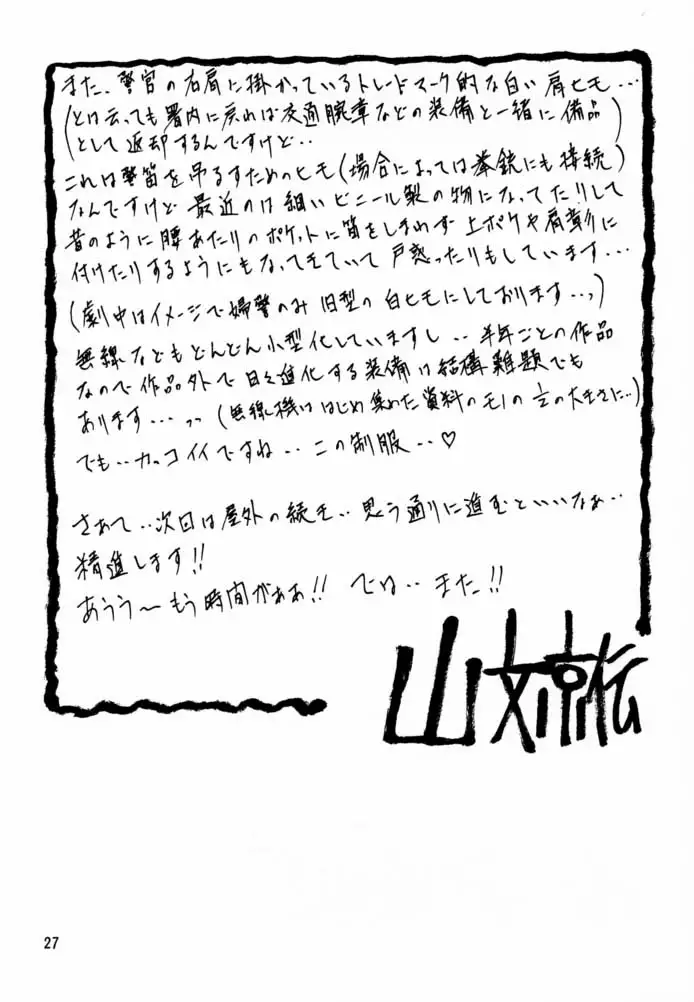 また、警官の右肩に掛かっているトレードマーク的な白い肩ヒモ…
(とは云っても署内に戻れば交通腕章などの装備と一緒に備品
として返却するんですけど‥)
これは警笛を吊るすためのヒモ(場合によっては拳銃にも接続)
なんですけど最近のは細いビニール製の物になってたりして
昔のように腰あたりのポケットに笛をしまわず上ポケや肩章に
付けたりするようにもなってきていて戸惑ったりもしています…
(劇中はイメージで婦警のみ旧型の白ヒモにしております‥っ)
無線などもどんどん小型化していますし‥半年ごとの作品
なので作品外で日々進化する装備は結構難題でも
あります…っっ(無線機ははじめ集めた資料のモノの1/2の大きさに‥)
でも‥カッコイイですね‥この制服‥♡
さあて‥次回は屋外の続き‥思う通りに進むといいなぁ‥
精進します!!
あうう〜もう時間がああ!! では‥また!!
山文京伝
27